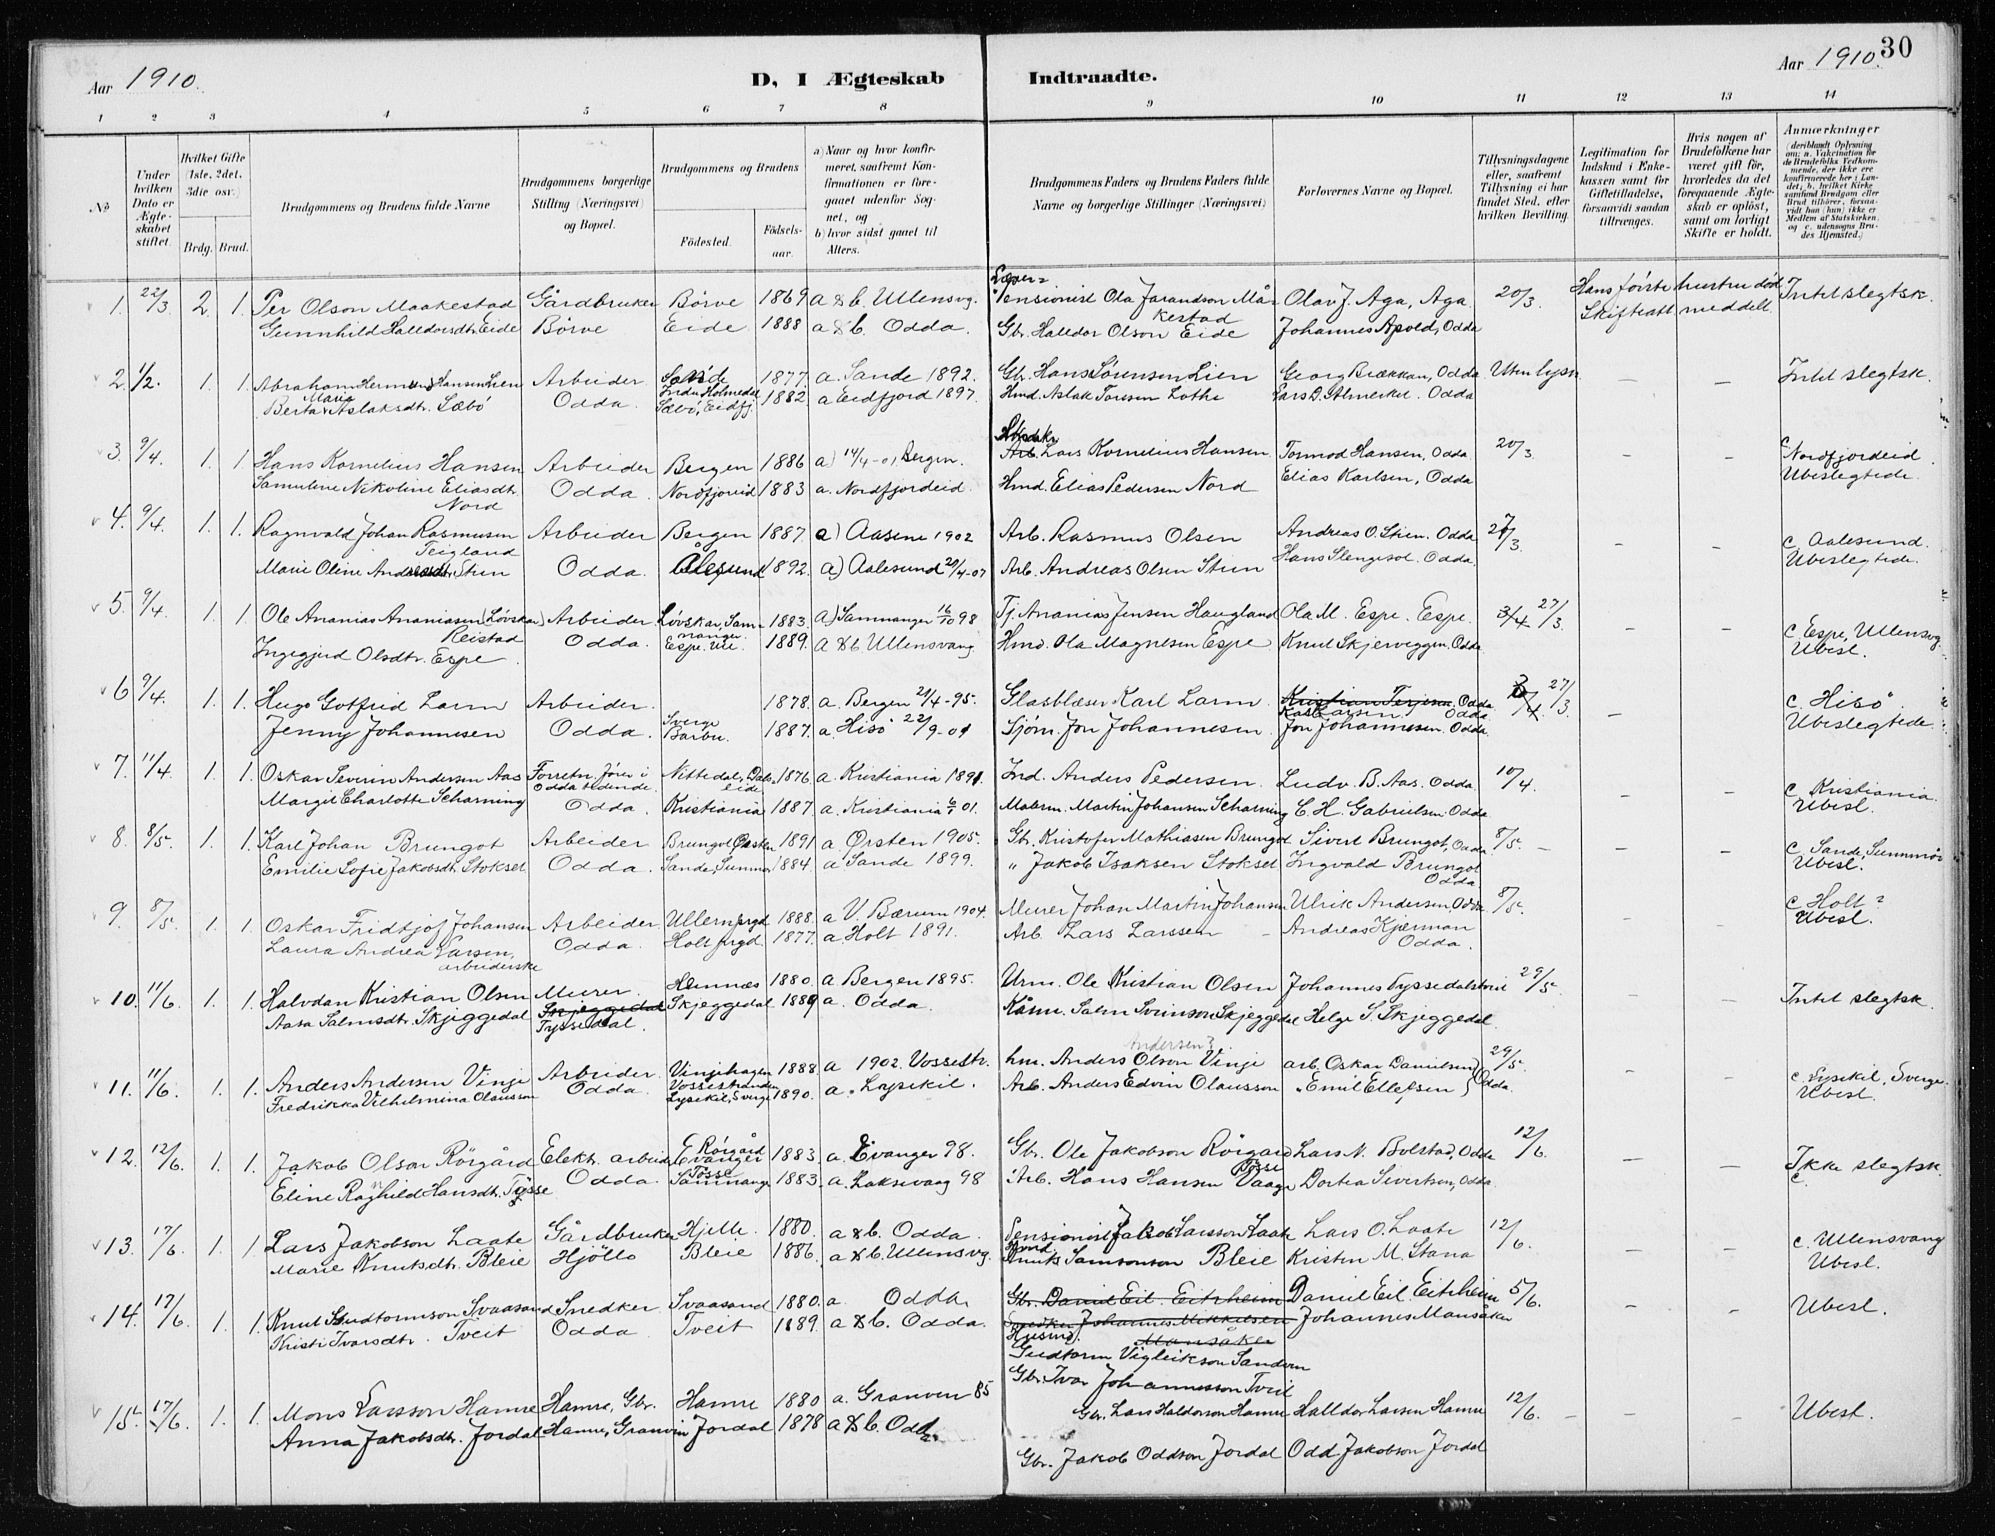 30
Aar 1910.
D, I Ægteskab Indtraadte.
Aar 1910.
1 2 3 4 5 6 7 8 9 10 11 12 13 14
No
Under hvilken Dato er Ægteskabet stiftet.
Hvilket Gifte (1ste, 2det, 3die osv.)
Brdg. Brud.
Brudgommens og Brudens fulde Navne
Brudgommens borgerlige Stilling (Næringsvei) og Bopæl.
Brudgommens og Brudens
Födested.
Födselsaar.
a) Naar og hvor konfirmeret, saafremt Konfirmationen er foregaaet udenfor Sognet, og
b) hvor sidst gaaet til Alters.
Brudgommens Faders og Brudens Faders fulde Navne og borgerlige Stillinger (Næringsvei)
Forlovernes Navne og Bopæl.
Tillysningsdagene eller, saafremt Tillysning ei har fundet Sted, efter hvilken Bevilling.
Legitimation for Indskud i Enkekassen samt for Giftetilladelse, forsaavidt saadan tiltrænges.
Hvis nogen af Brudefolkene har været gift för, hvorledes da det foregaaende Ægteskab er oplöst, samt om lovligt Skifte er holdt.
Anmærkninger (deriblandt Oplysning om: a. Vakcination for de Brudefolks Vedkommende, der ikke ere konfirmerede her i Landet; b. hvilket Kirkesamfund Brudgom eller Brud tilhörer, forsaavidt han (hun) ikke er Medlem af Statskirken, og c. udensogns Brudes Hjemsted.)
1. 22/3 2. 1. Per Olson Maakestad Gårdbruker Börve 1869 a & b. Ullensvg. Pensionist Ola Jarandson Måkestad Olav J. Aga, Aga 20/3. Hans förste hustru död Intet slegtsk.
Gunnhild Halldorsdtr. Eide Börve Eide 1888 a & b. Odda. Gbr. Halldor Olson Eide Johannes Apold, Odda Skifteatt meddelt.
2. 1/2. 1. 1. Abraham Herman Hansen Lien Arbeider 1877. a. Sande 1892. Gbr. Hans Sörensen Lien Georg Brækkan, Odda Uten lysn. — — Intet slegtsk.
Berta Maria Aslaksdtr. Sæbö Odda. Indre Holmedal Sæbö, Eidfj. 1882 a Eidfjord 1897. Hmd. Aslak Toresen Lothe Lars D. Almerket. Odda
3. 9/4. 1. 1. Hans Kornelius Hansen Arbeider Bergen 1886 a) 14/4-01 Bergen. Lars Kornelius Hansen Tormod Hansen, Odda 20/3 c Nordfjordeid.
Samuline Nikoline Eliasdtr. Nord Odda. Nordfjoreid 1883 a. Nordfjordeid. Hmd. Elias Pedersen Nord Elias Karlsen, Odda Ubeslegtede.
4. 9/4. 1. 1. Ragnvald Johan Rasmusen Teigland Arbeider Bergen 1887. a) Aasene 1902 Arb. Rasmus Olsen Andreas O. Stien. Odda 27/3. — — c. Aalesund.
Marie Oline Stien Odda. Ålesund 1892. a) Aalesund 21/4-07 Arb. Andreas Olsen Stien Hans Slengesol. Odda. Ubeslegtede.
5. 9/4. 1. 1. Ole Ananias Ananiasen (Lövskar) Reistad Arbeider Lövskar, Samnanger 1883. a) Samnanger 16/10 98 Tj. Ananias Jensen Haugland Ola M. Espe. Espe. 3/4 27/3. — — c Espe, Ullensvg
Ingegjerd Olsdtr. Espe. Odda. Espe. 1889. a & b Ullensvang Hmd. Ola Magnesen Espe Knut Skjerveggen. Odda Ubesl.
6 9/4. 1. 1. Hugo Gotfred Larm Arbeider. Sverge 1878. a. Bergen 21/4-95. Glasblæser Karl Larm Kristian Terjesen. Odda 27/3. — c. Hisö
Karl Larsen, Odda
Jenny Johannesen Odda. Barbu. 1887. a. Hisö 22/9-01 Sjöm. Jon Johannesen Jon Johannesen. Odda. Ubeslegtede
7. 11/4 1. 1. Oskar Severin Andersen Aas Forretn. förer i Odda tidende Nittedal, 1876 a. Kristiania 1891. Ind. Anders Pedersen Ludv. B. Aas. Odda. 10/4. — — c Kristiania.
Margit Charlotte Scharning Odda. Kristiania 1887 a. Kristiania 01. Malerm. Martin Johansen Scharning C. H. Gabrielsen. Odda Ubesl.
8. 8/5. 1. 1. Karl Johan Brungot Arbeider Brungot Örsten 1891 a. Örsten 1905. Gb. Kristofer Mathiassen Brungot Sivert Brungot, Odda 8/5. — — c. Sande, Sunnmör
Emilie Sofie Jakobsdtr. Stokset Odda. Sande, Sunmör 1884. a. Sande 1899. " Jakob Isaksen Stokset Ingvald Brungot Odda Ubesl.
9. 8/5. 1. 1 Oskar Fridtjof Johansen Arbeider Ullern prgd 1888. a V. Bærum 1904. Murer Johan Martin Johansen Ulrik Andersen, Odda 8/5. — c Holt?
Laura Andrea Larsen, arbeiderske Odda. Holt prgd. 1877. a. Holt 1891. Arb. Lars Larssen Andreas Kjerman Odda. Ubesl.
10. 11/6. 1. 1. Halvdan Kristian Olsen Murer. Hemnæs 1880. a. Bergen 1895. Urm. Ole Kristian Olsen Johannes 29/5 — — Intet slegtsk.
Aasa Salmsdtr. Skjeggedal Skjeggedal Tyssedal. Skjeggedal 1889 a. Odda. Kårm. Salm Sveinson Skjeggedal Helge S. Skjeggedal.
Andersen?
11. 11/6. 1. 1. Anders Andersen Vinje Arbeider. Vinjehagen Vossestranden 1888 a 1902. Vossestr. hm. Anders Olson Vinje arb. Oskar Danielsen 29/5 — — c. Lysekil, Sverge.
Fredrikka Vilhelmina Olausson Odda. Lysekil, Sverge 1890. a. Lysekil. Arb. Anders Edvin Olausson " Emil Ellefsen } Odda. Ubesl.
12. 12/6. 1. 1. Jakob Olson Rörgård Elekt. arbeider Rörgård Evanger 1883. a. Evanger 98. Gbr. Ole Jakobson Rörgård Lars N. Bolstad, Odda 12/6. — — Ikke slegtsk.
Eline Ragnhild Hansdtr. Tösse Odda. Tösse Samnanger 1883. a. Laksevaag 98 Arb. Hans Hansen Tösse Vaage Dortea Sivertsen, Odda. c.
13. 17/6. 1. 1. Lars Jakobson Laate Gårdbruker Hjelle. 1880. a & b. Odda. Pensionist Jakob Larsson Laate Lars O. Laate 12/6. — — c. Ullensvang
Marie Knutsdtr. Bleie Hjöllo Bleie 1886. a & b. Ullensvg. Hmd Knuts Samsonson Bleie Kristen M. Stana Ubesl.
14. 17/6. 1. 1. Knut Gudtormson Svaasand Snedker. Svaasand 1880. a. Odda Gbr. Daniel Eil. Eitrheim Daniel Eil. Eitrheim 5/6. — — Ubesl.
Kristi Ivarsdtr. Tveit Odda. Tveit 1889. a & b. Odda. Snedker Johannes Mikkelsen Mansåker Johannes Mansåker
Husmd. Gudtorm Vigleikson Sandven
Gbr. Ivar Johannesson Tveit
15. 17/6. 1. 1. Mons Larsson Hamre Hamre, Gbr. Hamre 1880 a. Granvin 85 Gbr. Lars Haldorson Hamre Halldor Larsen Hamre 12/6. — — — Ubesl.
Anna Jakobsdtr. Jordal Hamre, Granvin Jordal 1878 a & b. Odda Gbr. Jakob Oddson Jordal Odd Jakobson Jordal